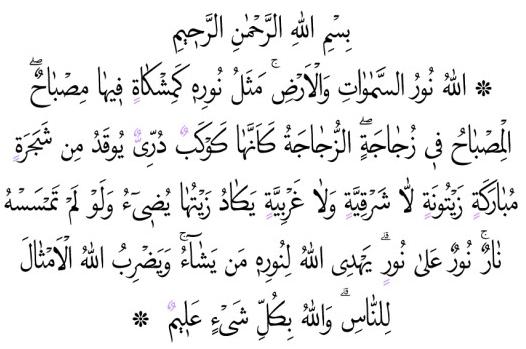 بِسْمِ اللهِ الرَّحْمٰنِ الرَّحِيمِ
❋ اللهُ نُورُ السَّمٰوَاتِ وَالْاَرْضِۜ مَثَلُ نُورِهِ كَمِشْكَاةٍ فِيهَا مِصْبَاحٌۜ
الْمِصْبَاحُ فِى زُجَاجَةٍۜ الزُّجَاجَةُ كَاَنَّهَا كَوْكَبٌ دُرِّىٌّ يُوقَدُ مِن شَجَرَةٍ
مُبَارَكَةٍ زَيْتُونَةٍ لَّا شَرْقِيَّةٍ وَلَا غَرْبِيَّةٍ يَكَادُ زَيْتُهَا يُضِىءُ وَلَوْ لَمْ تَمْسَسْهُ
نَارٌۚ نُورٌ عَلَىٰ نُورٍۗ يَهْدِى اللهُ لِنُورِهِ مَن يَشَاءُۚ وَيَضْرِبُ اللهُ الْاَمْثَالَ
لِلنَّاسِۗ وَاللهُ بِكُلِّ شَىْءٍ عَلِيمٌ ❋